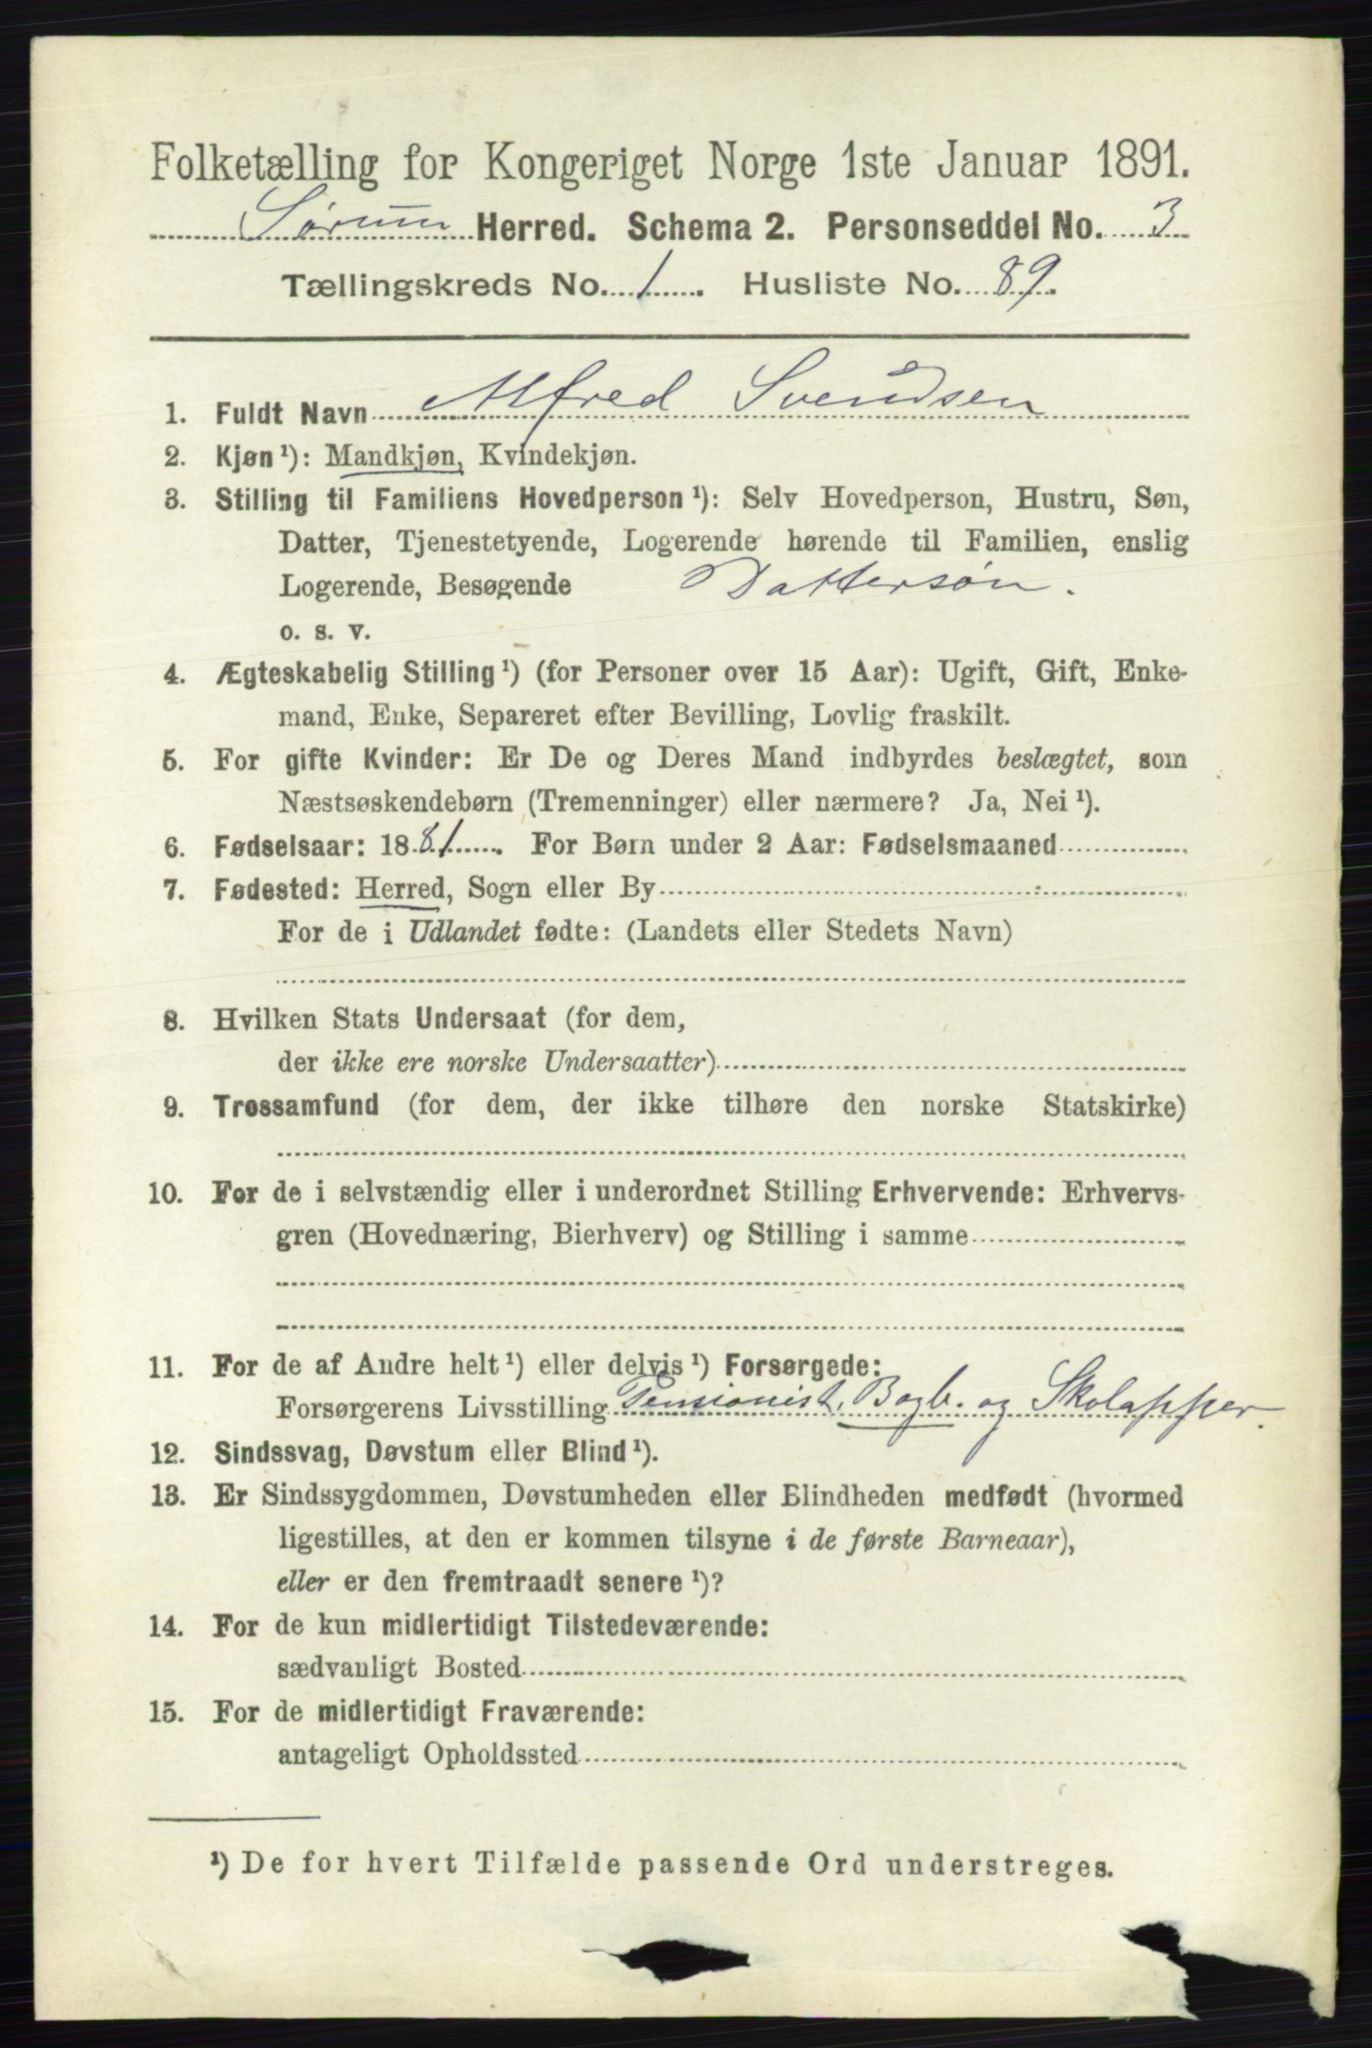 Folketælling for Kongeriget Norge 1ste Januar 1891.
Sørum Herred. Schema 2. Personseddel No. 3
Tællingskreds No. 1. Husliste No. 89.
1. Fuldt Navn Alfred Svendsen
2. Kjøn ¹): Mandkjøn, Kvindekjøn.
3. Stilling til Familiens Hovedperson ¹): Selv Hovedperson, Hustru, Søn,
Datter, Tjenestetyende, Logerende hørende til Familien, enslig
Logerende, Besøgende Dattersøn.
o. s. v.
4. Ægteskabelig Stilling ¹) (for Personer over 15 Aar): Ugift, Gift, Enke-
mand, Enke, Separeret efter Bevilling, Lovlig fraskilt.
5. For gifte Kvinder: Er De og Deres Mand indbyrdes beslægtet, som
Næstsøskendebørn (Tremenninger) eller nærmere? Ja, Nei ¹).
6. Fødselsaar: 1881. For Børn under 2 Aar: Fødselsmaaned
7. Fødested: Herred, Sogn eller By
For de i Udlandet fødte: (Landets eller Stedets Navn)
8. Hvilken Stats Undersaat (for dem,
der ikke ere norske Undersaatter)
9. Trossamfund (for dem, der ikke tilhøre den norske Statskirke)
10. For de i selvstændig eller i underordnet Stilling Erhvervende: Erhvervs-
gren (Hovednæring, Bierhverv) og Stilling i samme
11. For de af Andre helt ¹) eller delvis ¹) Forsørgede:
Forsørgerens Livsstilling Pensionist, Bogb. og Skolapper.
12. Sindssvag, Døvstum eller Blind ¹).
13. Er Sindssygdommen, Døvstumheden eller Blindheden medfødt (hvormed
ligestilles, at den er kommen tilsyne i de første Barneaar),
eller er den fremtraadt senere ¹)?
14. For de kun midlertidigt Tilstedeværende:
sædvanligt Bosted
15. For de midlertidigt Fraværende:
antageligt Opholdssted
¹) De for hvert Tilfælde passende Ord understreges.